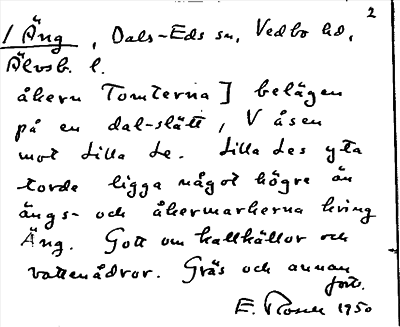 2
/ Äng, Dals-Eds sn, Vedbo hd,
Älvsb. l.
åkern Tomterna] belägen
på en dal-slätt, V åsen
mot Lilla Le. Lilla Les yta
torde ligga något högre än
ängs- och åkermarkerna kring
Äng. Gott om kallkällor och
vattenådror. Gräs och annan
forts.
E. Rosen 1950